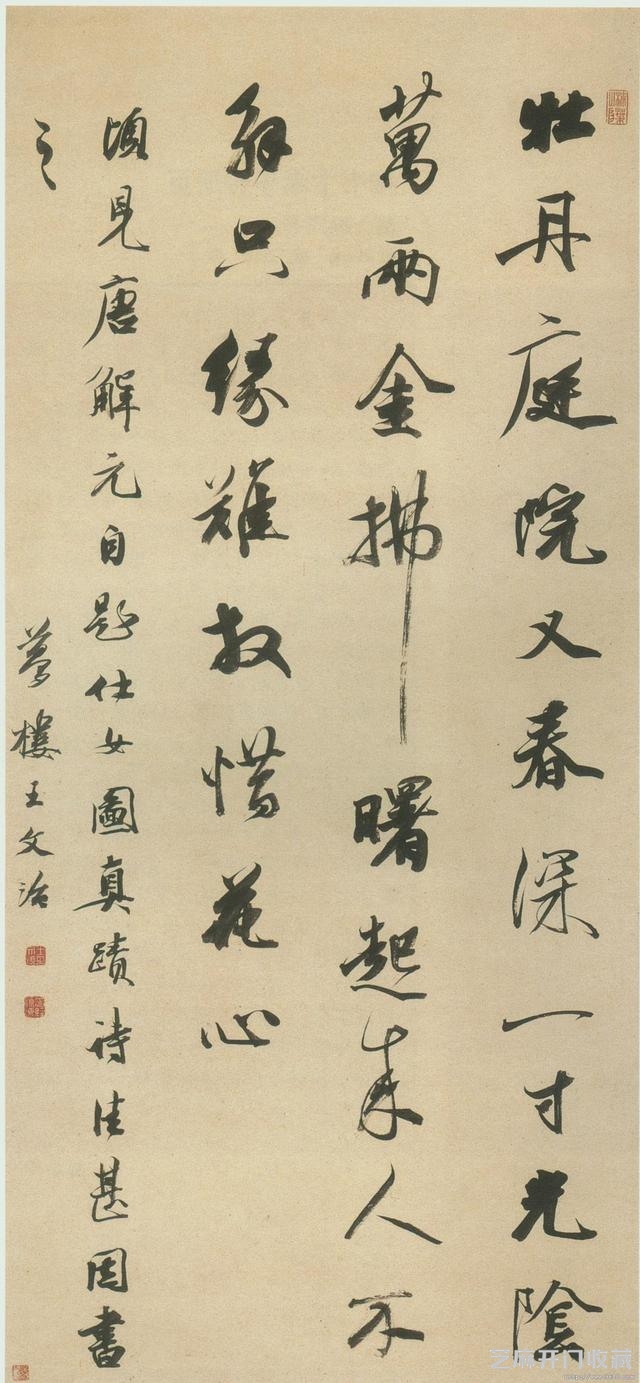 牡丹庭院又春深一寸光陰
萬兩金拂曙起來人不
解只緣難放惜花心
頃見唐解元自題仕女圖真蹟詩佳甚因書
之
夢樓王文治
芝麻开门收藏